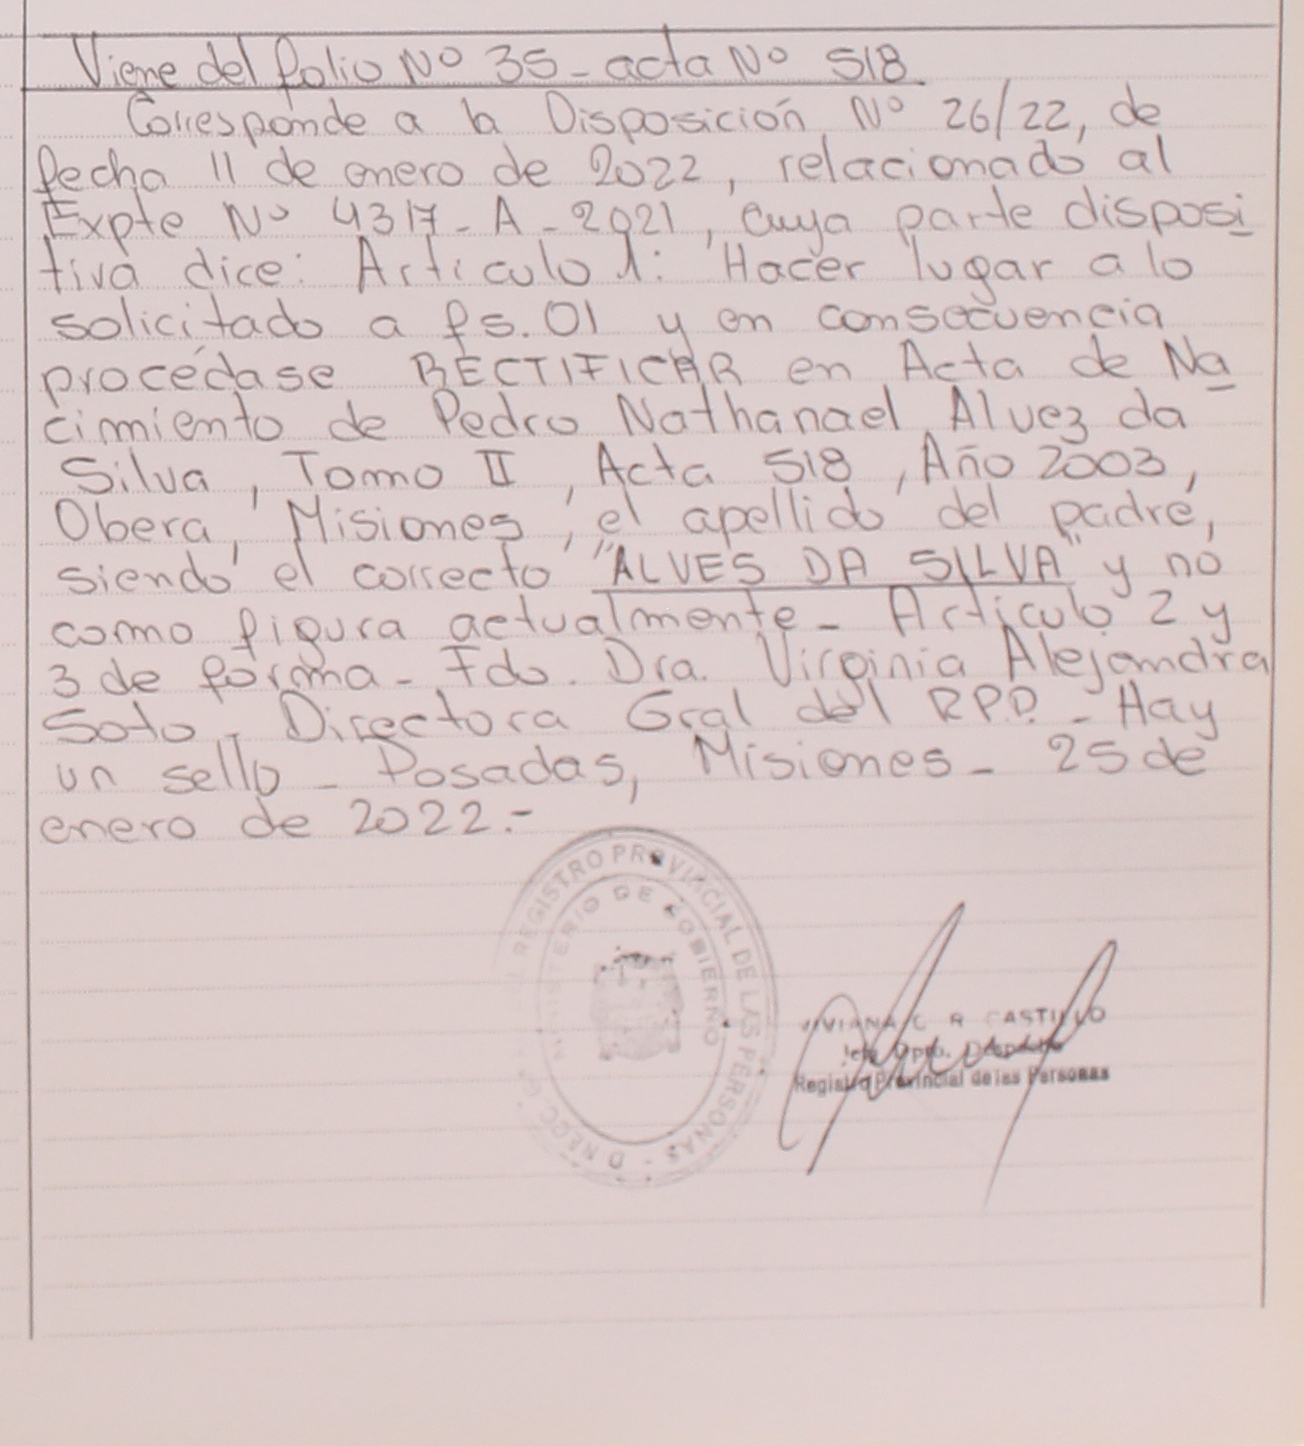 Viene del folio Nº 35 - acta Nº 518
Corresponde a la Disposición Nº 26/22, de
fecha 11 de enero de 2022, relacionado al
Expte Nº 4317 - A - 2021, cuya parte disposi
tiva dice: Artículo 1: Hacer lugar a lo
solicitado a fs. 01 y en consecuencia
procédase RECTIFICAR en Acta de Na
cimiento de Pedro Nathanael Alvez da
Silva, Tomo II, Acta 518, Año 2003,
Obera, Misiones, el apellido del padre,
siendo el correcto "ALVES DA SILVA" y no
como figura actualmente - Artículo 2 y
3 de forma - Fdo. Dra. Virginia Alejandra
Soto - Directora Gral del R.P.P. - Hay
un sello - Posadas, Misiones - 25 de
enero de 2022.-
REGISTRO PROVINCIAL DE LAS PERSONAS -
MINISTERIO DE GOBIERNO
VIVIANA C R CASTILLO
Jefe Dpto. Despacho
Registro Provincial de las Personas